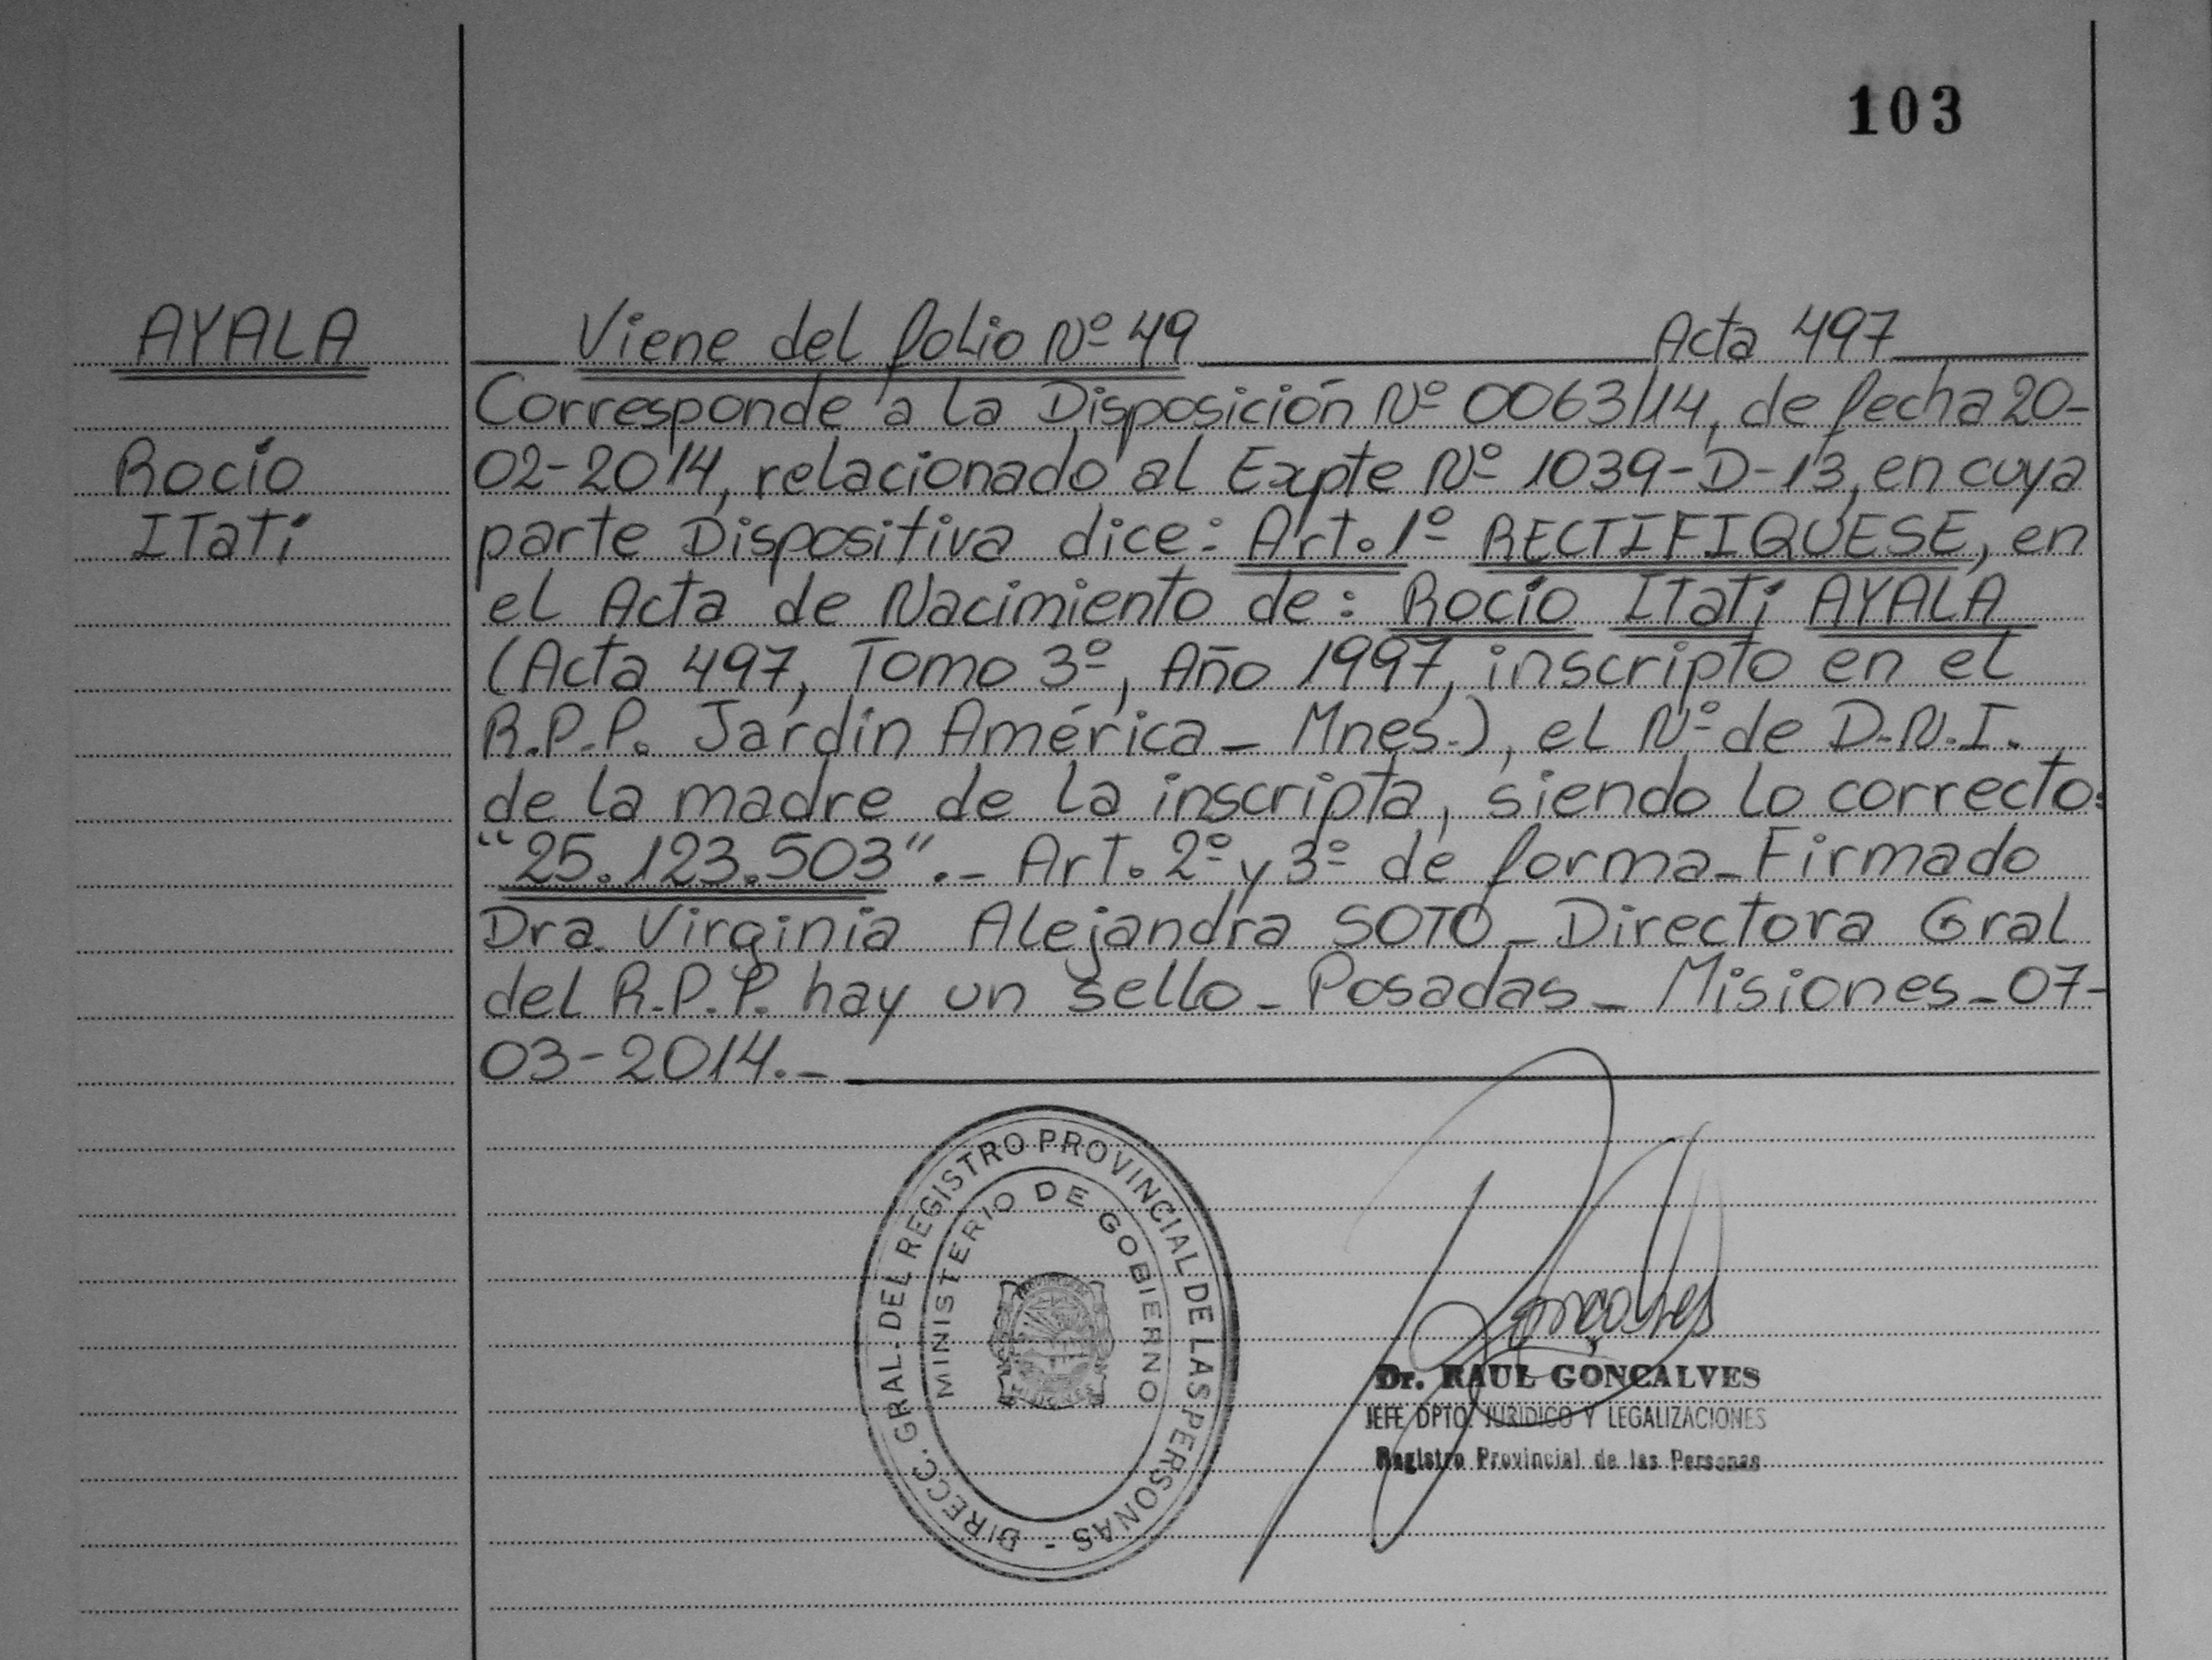 103
AYALA
Rocío
ITatí
Viene del folio Nº 49 Acta 497
Corresponde a la Disposición Nº 0063/14, de fecha 20-
02-2014, relacionado al Expte Nº 1039-D-13, en cuya
parte Dispositiva dice: Art. 1º RECTIFIQUESE, en
el Acta de Nacimiento de: Rocío ITatí AYALA
(Acta 497, Tomo 3º, Año 1997, inscripto en el
R.P.P. Jardín América - Mnes.), el Nº de D.N.I.
de la madre de la inscripta, siendo lo correcto:
"25.123.503".- Art. 2º y 3º de forma - Firmado
Dra. Virginia Alejandra SOTO - Directora Gral
del R.P.P. hay un sello - Posadas - Misiones - 07-
03-2014.-
DIRECC. GRAL. DEL REGISTRO PROVINCIAL DE LAS PERSONAS -
MINISTERIO DE GOBIERNO
Gonçalves
Dr. RAUL GONÇALVES
JEFE DPTO. JURIDICO Y LEGALIZACIONES
Registro Provincial de las Personas